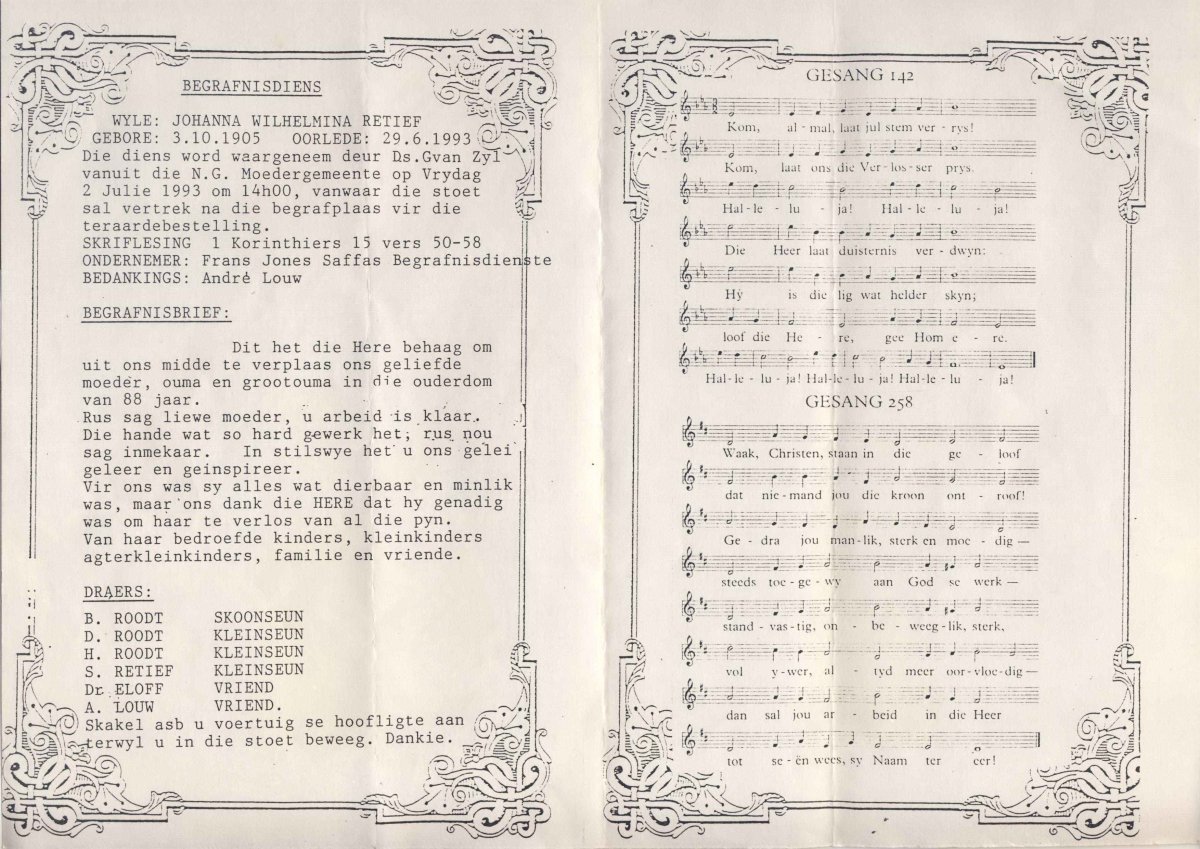 BEGRAFNISDIENS
WYLE: JOHANNA WILHELMINA RETIEF
GEBORE: 3.10.1905 OORLEDE: 29.6.1993
Die diens word waargeneem deur Ds.Gvan Zyl
vanuit die N.G. Moedergemeente op Vrydag
2 Julie 1993 om 14h00, vanwaar die stoet
sal vertrek na die begrafplaas vir die
teraardebestelling.
SKRIFLESING 1 Korinthiers 15 vers 50-58
ONDERNEMER: Frans Jones Saffas Begrafnisdienste
BEDANKINGS: André Louw
BEGRAFNISBRIEF:
Dit het die Here behaag om
uit ons midde te verplaas ons geliefde
moeder, ouma en grootouma in die ouderdom
van 88 jaar.
Rus sag liewe moeder, u arbeid is klaar.
Die hande wat so hard gewerk het, rus nou
sag inmekaar. In stilswye het u ons gelei
geleer en geinspireer.
Vir ons was sy alles wat dierbaar en minlik
was, maar ons dank die HERE dat hy genadig
was om haar te verlos van al die pyn.
Van haar bedroefde kinders, kleinkinders
agterkleinkinders, familie en vriende.
DRAERS:
B. ROODT SKOONSEUN
D. ROODT KLEINSEUN
H. ROODT KLEINSEUN
S. RETIEF KLEINSEUN
Dr. ELOFF VRIEND
A. LOUW VRIEND.
Skakel asb u voertuig se hoofligte aan
terwyl u in die stoet beweeg. Dankie.
GESANG 142
Kom, al-mal, laat jul stem ver-rys!
Kom, laat ons die Ver-los-ser prys.
Hal-le-lu-ja! Hal-le-lu-ja!
Die Heer laat duisternis ver-dwyn:
Hy is die lig wat helder skyn;
loof die He-re, gee Hom e-re.
Hal-le-lu-ja! Hal-le-lu-ja! Hal-le-lu-ja!
GESANG 258
Waak, Christen, staan in die ge-loof
dat nie-mand jou die kroon ont-roof!
Ge-dra jou man-lik, sterk en moe-dig—
steeds toe-ge-wy aan God se werk—
stand-vas-tig, on-be-weeg-lik, sterk,
vol y-wer, al-tyd meer oor-vloe-dig—
dan sal jou ar-beid in die Heer
tot se-ën wees, sy Naam ter eer!